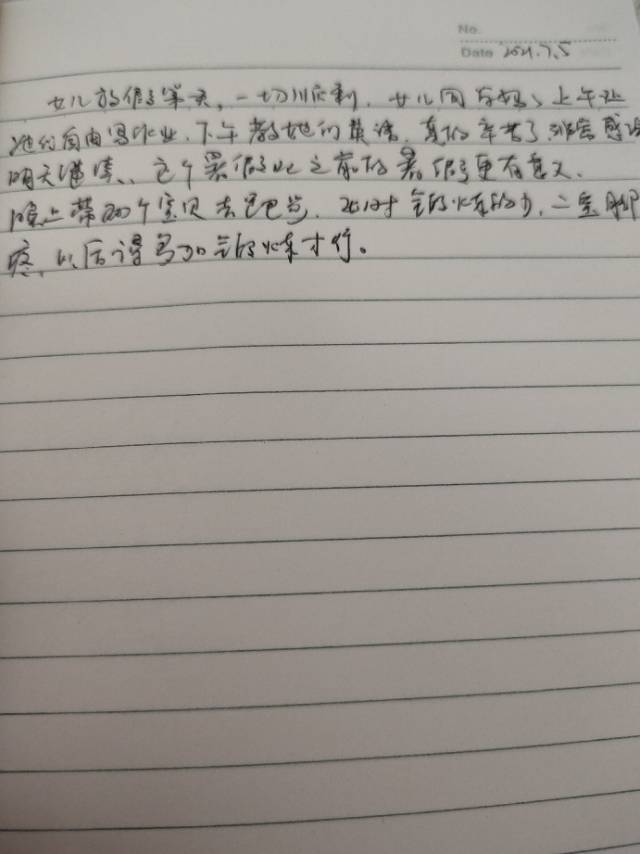 No.
Date 2021.7.5
女儿放假第一天,一切顺利,女儿同有妈、上午让
她们自由写作业,下午教她们英语,真的辛苦了非常感谢
明天继续、这个暑假比之前的暑假更有意义.
晚上带两个宝贝去爬山,平时锻炼的少,二宝脚
疼,以后得多加锻炼才行。